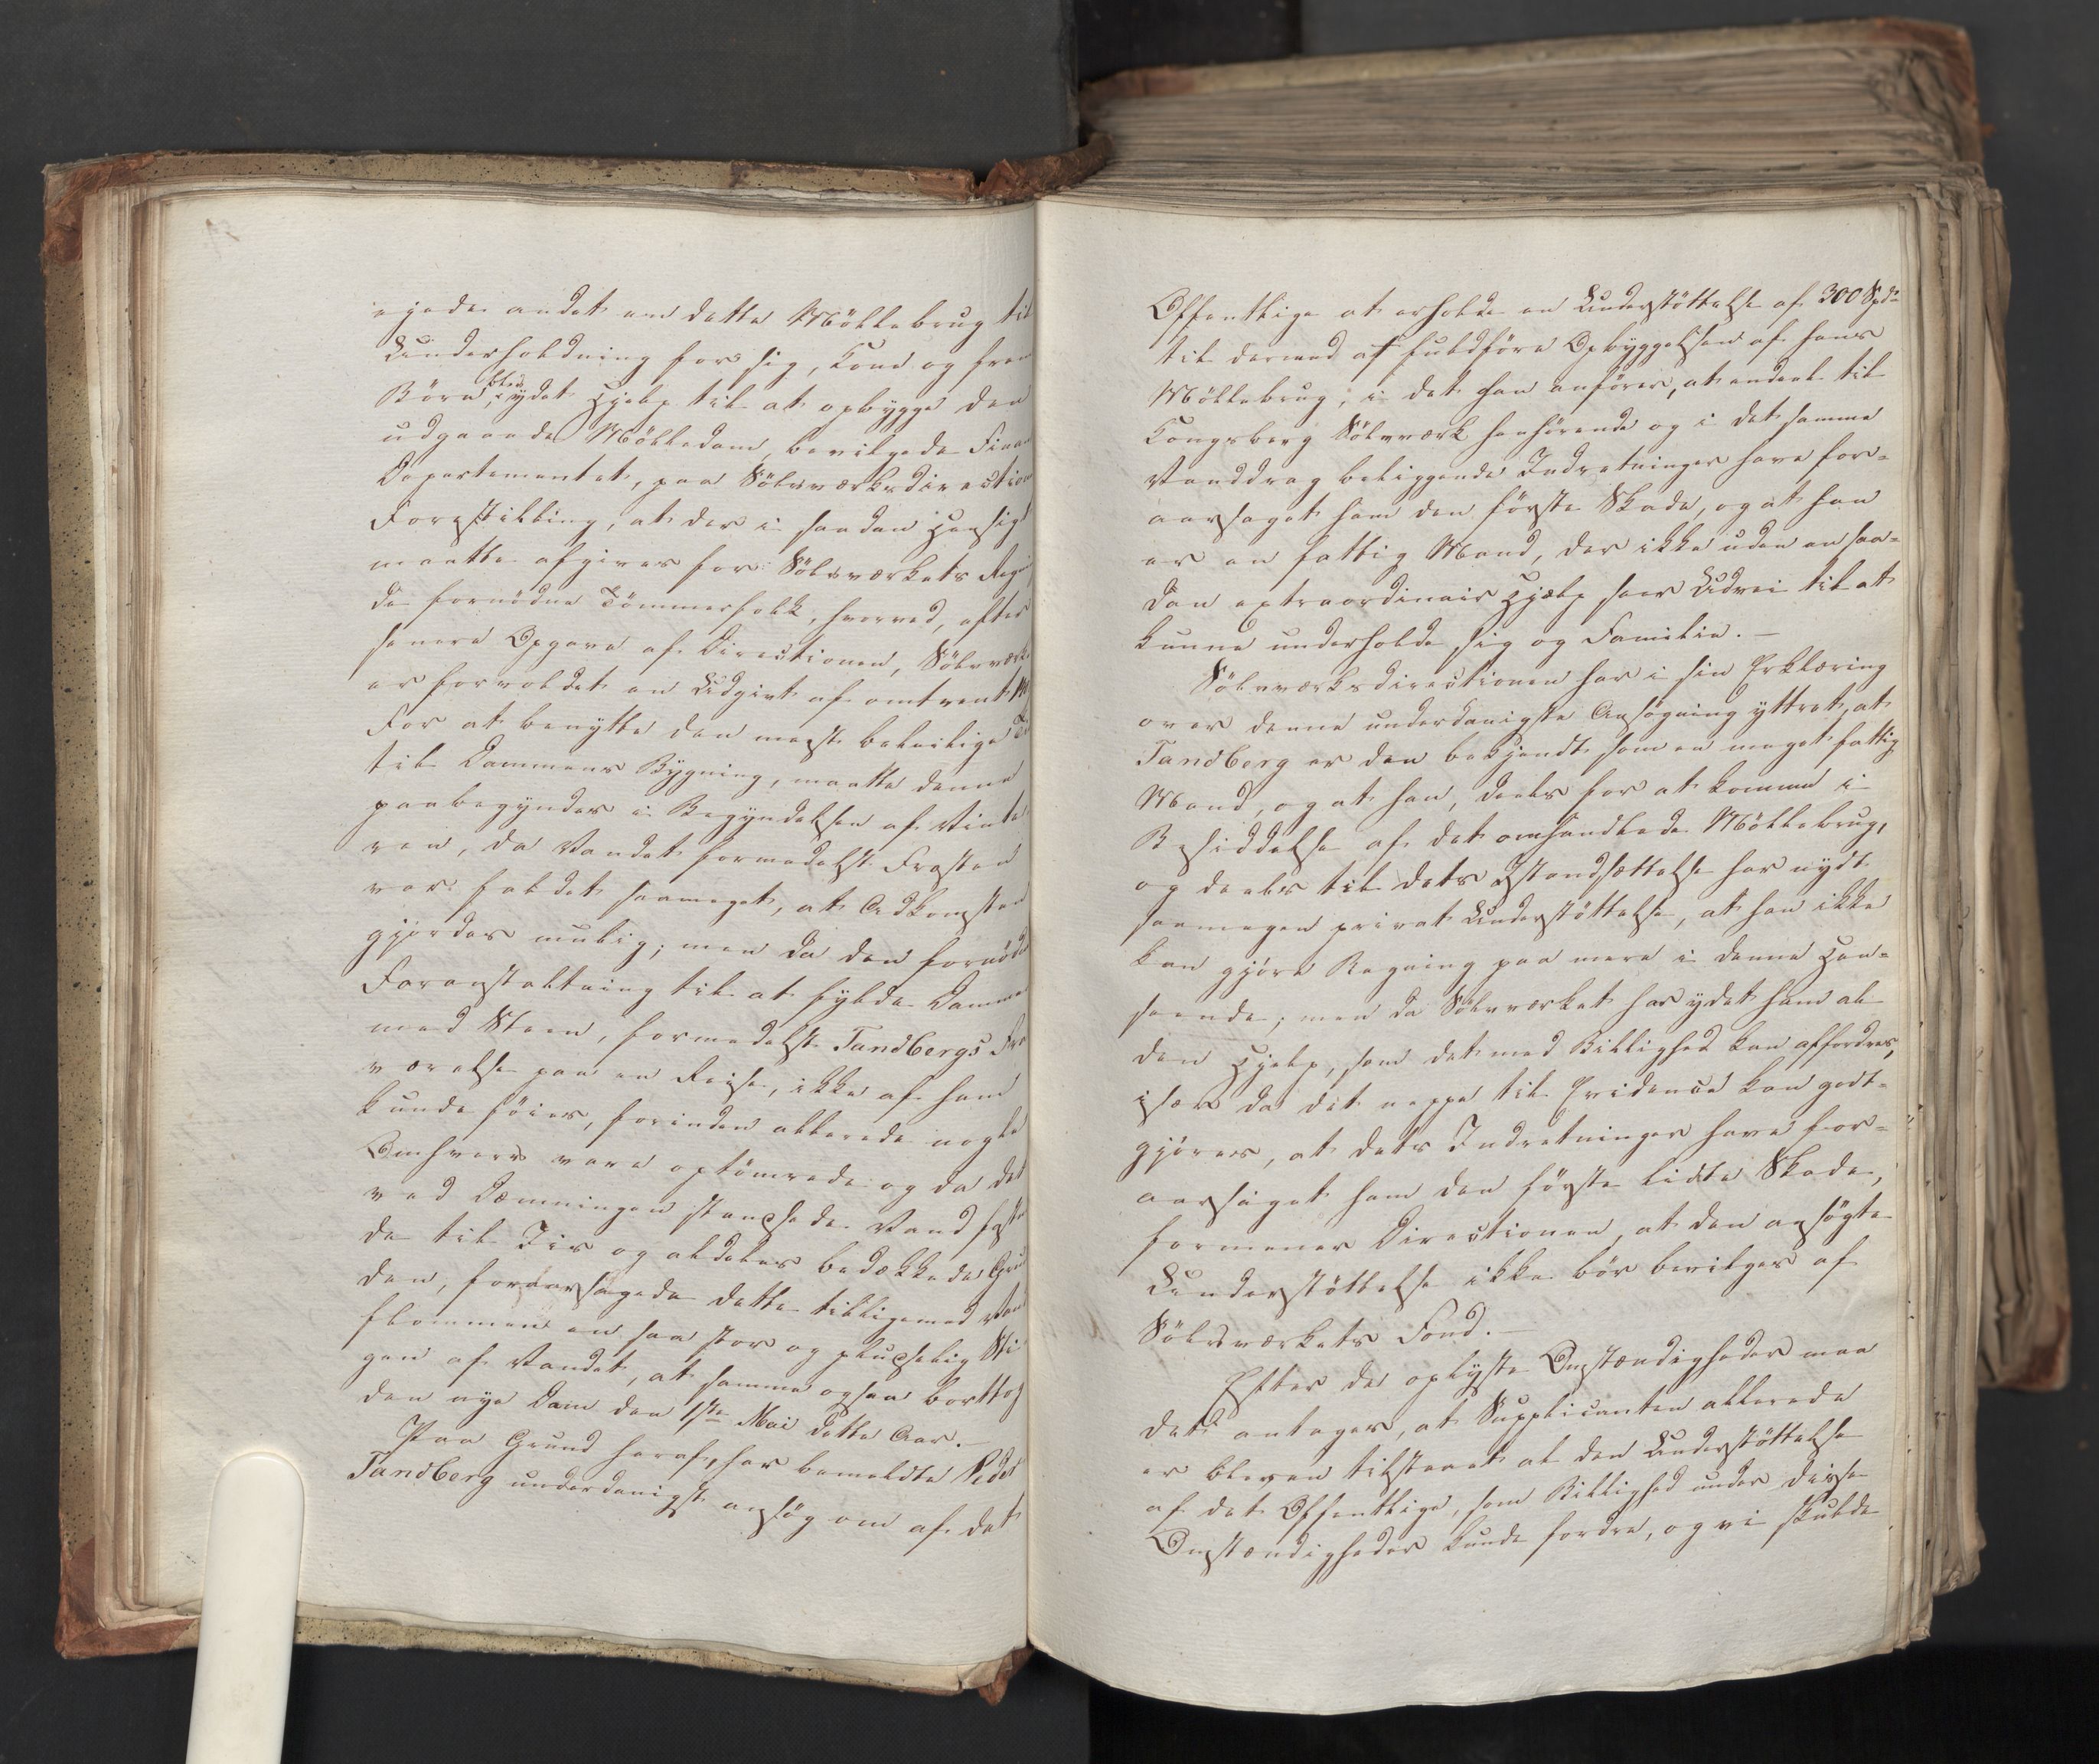 ejede andet end dette Möllebrug til
Underholdning for sig, Kone og fem
Börn, blev ydet Hjelp til at opbygge den
udgaaede Mölledam, bevilgede Finan
Departementet, paa Sölvværksdirection
Forestilling, at der i saadan Hensigt
maatte afgives for Sölvværkets Regn
de fornödne Tömmerfolk, hvorved, efter
senere Opgave af Directionen, Sölvværk
er forvoldet en Udgivt af omtrent
For at benytte den meest beleilige
til Dammens Bygning, maatte denne
paabegyndes i Begyndelsen af Vinte
ren, da Vandet formedelst Frosten
var faldet saameget, at Adkomsten
gjordes mulig; men da den fornödne
Foranstaltning til at fylde Damme
med Steen, formedelst Tandbergs Fra
værelse paa en Reise, ikke af ham
kunde föies, forinden allerede nogle
Omhverv vare optömrede og da det
ved Dæmningen stanssede Vand frös
de til Iis og aldeles bedækkede Grun
den, foraarsagede dette tilligemed Van
flommen en saa stor og pludselig Sti
gen af Vandet, at samme ogsaa borttog
den nye Dam den 1ste Mai dette Aar.—
Paa Grund heraf, har bemeldte Peder
Tandberg underdanigst ansög om af det
Offentlige at erholde en Understöttelse af 300 Spd.
til dermed at fuldföre Opbyggelsen af hans
Möllebrug; i det han anförer, at endeel til
Kongsberg Sölvværk henhörende og i det samme
Vanddrag beliggende Indretninger have for-
aarsaget ham den förste Skade, og at han
er en fattig Mand, der ikke uden en saa-
dan extraordinair Hjælp seer Udvei til at
kunne underholde sig og Familie.—
Sölvværksdirectionen har i sin Erklæring
over denne underdanigste Ansögning yttret, at
Tandberg er den bekjendt som en meget fattig
Mand, og at han, deels for at komme i
Besiddelse af det omhandlede Möllebrug,
og deels til dets Istandsættelse har nydt
saamegen privat Understöttelse, at han ikke
kan gjöre Regning paa mere i denne Hen-
seende; men da Sölvværket har ydet ham al
den Hjelp, som det med Billighed kan affordres,
især da det neppe til Evidence kan godt-
gjöres, at dets Indretninger have for-
aarsaget ham den förste lidte Skade,
formener Directionen, at den ansögte
Understöttelse ikke bör bevilges af
Sölvværkets Fond.—
Efter de oplyste Omstændigheder maa
det antages, at Supplicanten allerede
er bleven tilstaaet al den Understöttelse
af det Offentlige, som Billighed under disse
Omstændigheder kunde fordre, og vi skulde